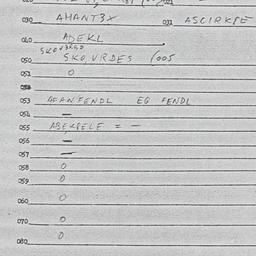 030 AHANT3X 031 ASCIRKPE
040 ADEKL
050 SKO, VRDES 1005
051 0
053 AFANFENDL EG FENDL
054 —
055 ABEKPELE = -
056 —
057 —
058 0
059 0
060 0
070 0
080 0